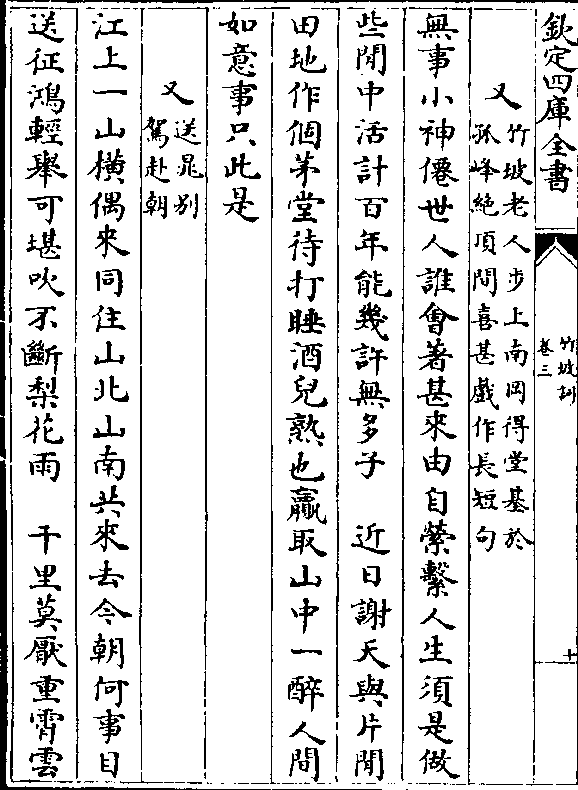 欽定四庫全書
竹坡詞
卷三
十
又
竹坡老人步上南岡得堂基於
孤峰絶頂間喜甚戲作長短句
無事小神僊世人誰會著甚來由自縈繫人生須是做
些閒中活計百年能幾許無多子　近日謝天與片閒
田地作個茅堂待打睡酒兒熟也贏取山中一醉人間
如意事只此是
又
送晁别
駕赴朝
江上一山橫偶來同住山北山南共來去今朝何事目
送征鴻輕舉可堪吹不斷梨花雨　千里莫厭重霄雲